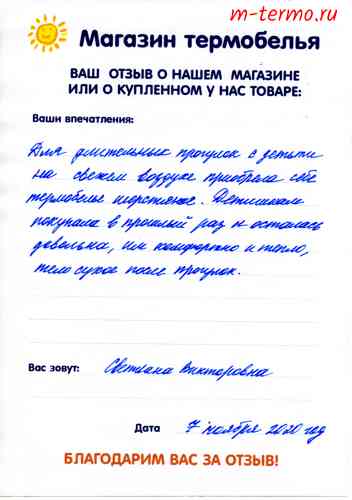 m-termo.ru
Магазин термобелья
ВАШ ОТЗЫВ О НАШЕМ МАГАЗИНЕ
ИЛИ О КУПЛЕННОМ У НАС ТОВАРЕ:
Ваши впечатления:
Для длительных прогулок с детьми
на свежем воздухе приобрела себе
термобелье шерстяное. Детишкам
покупала в прошлый раз и осталась
довольна, им комфортно и тепло,
тело сухое после прогулок.
Вас зовут: Светлана Викторовна
Дата 7 ноября 2020 год
БЛАГОДАРИМ ВАС ЗА ОТЗЫВ!